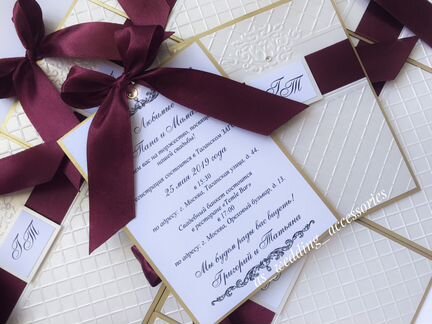 Любимые
Папа и Мама
вас на торжество, посвящ
нашей свадьбы!
регистрация состоится в Таганском ЗАГС
25 мая 2019 года
в 15:30
по адресу: г. Москва, Таганская улица, д. 44.
Свадебный банкет состоится
в ресторане «Temle Bar»
в 17:00
по адресу: г. Москва, Ореховый бульвар, д. 13.
Мы будем рады вас видеть!
Григорий и Татьяна
ГТ
ГТ
wedding_accessories